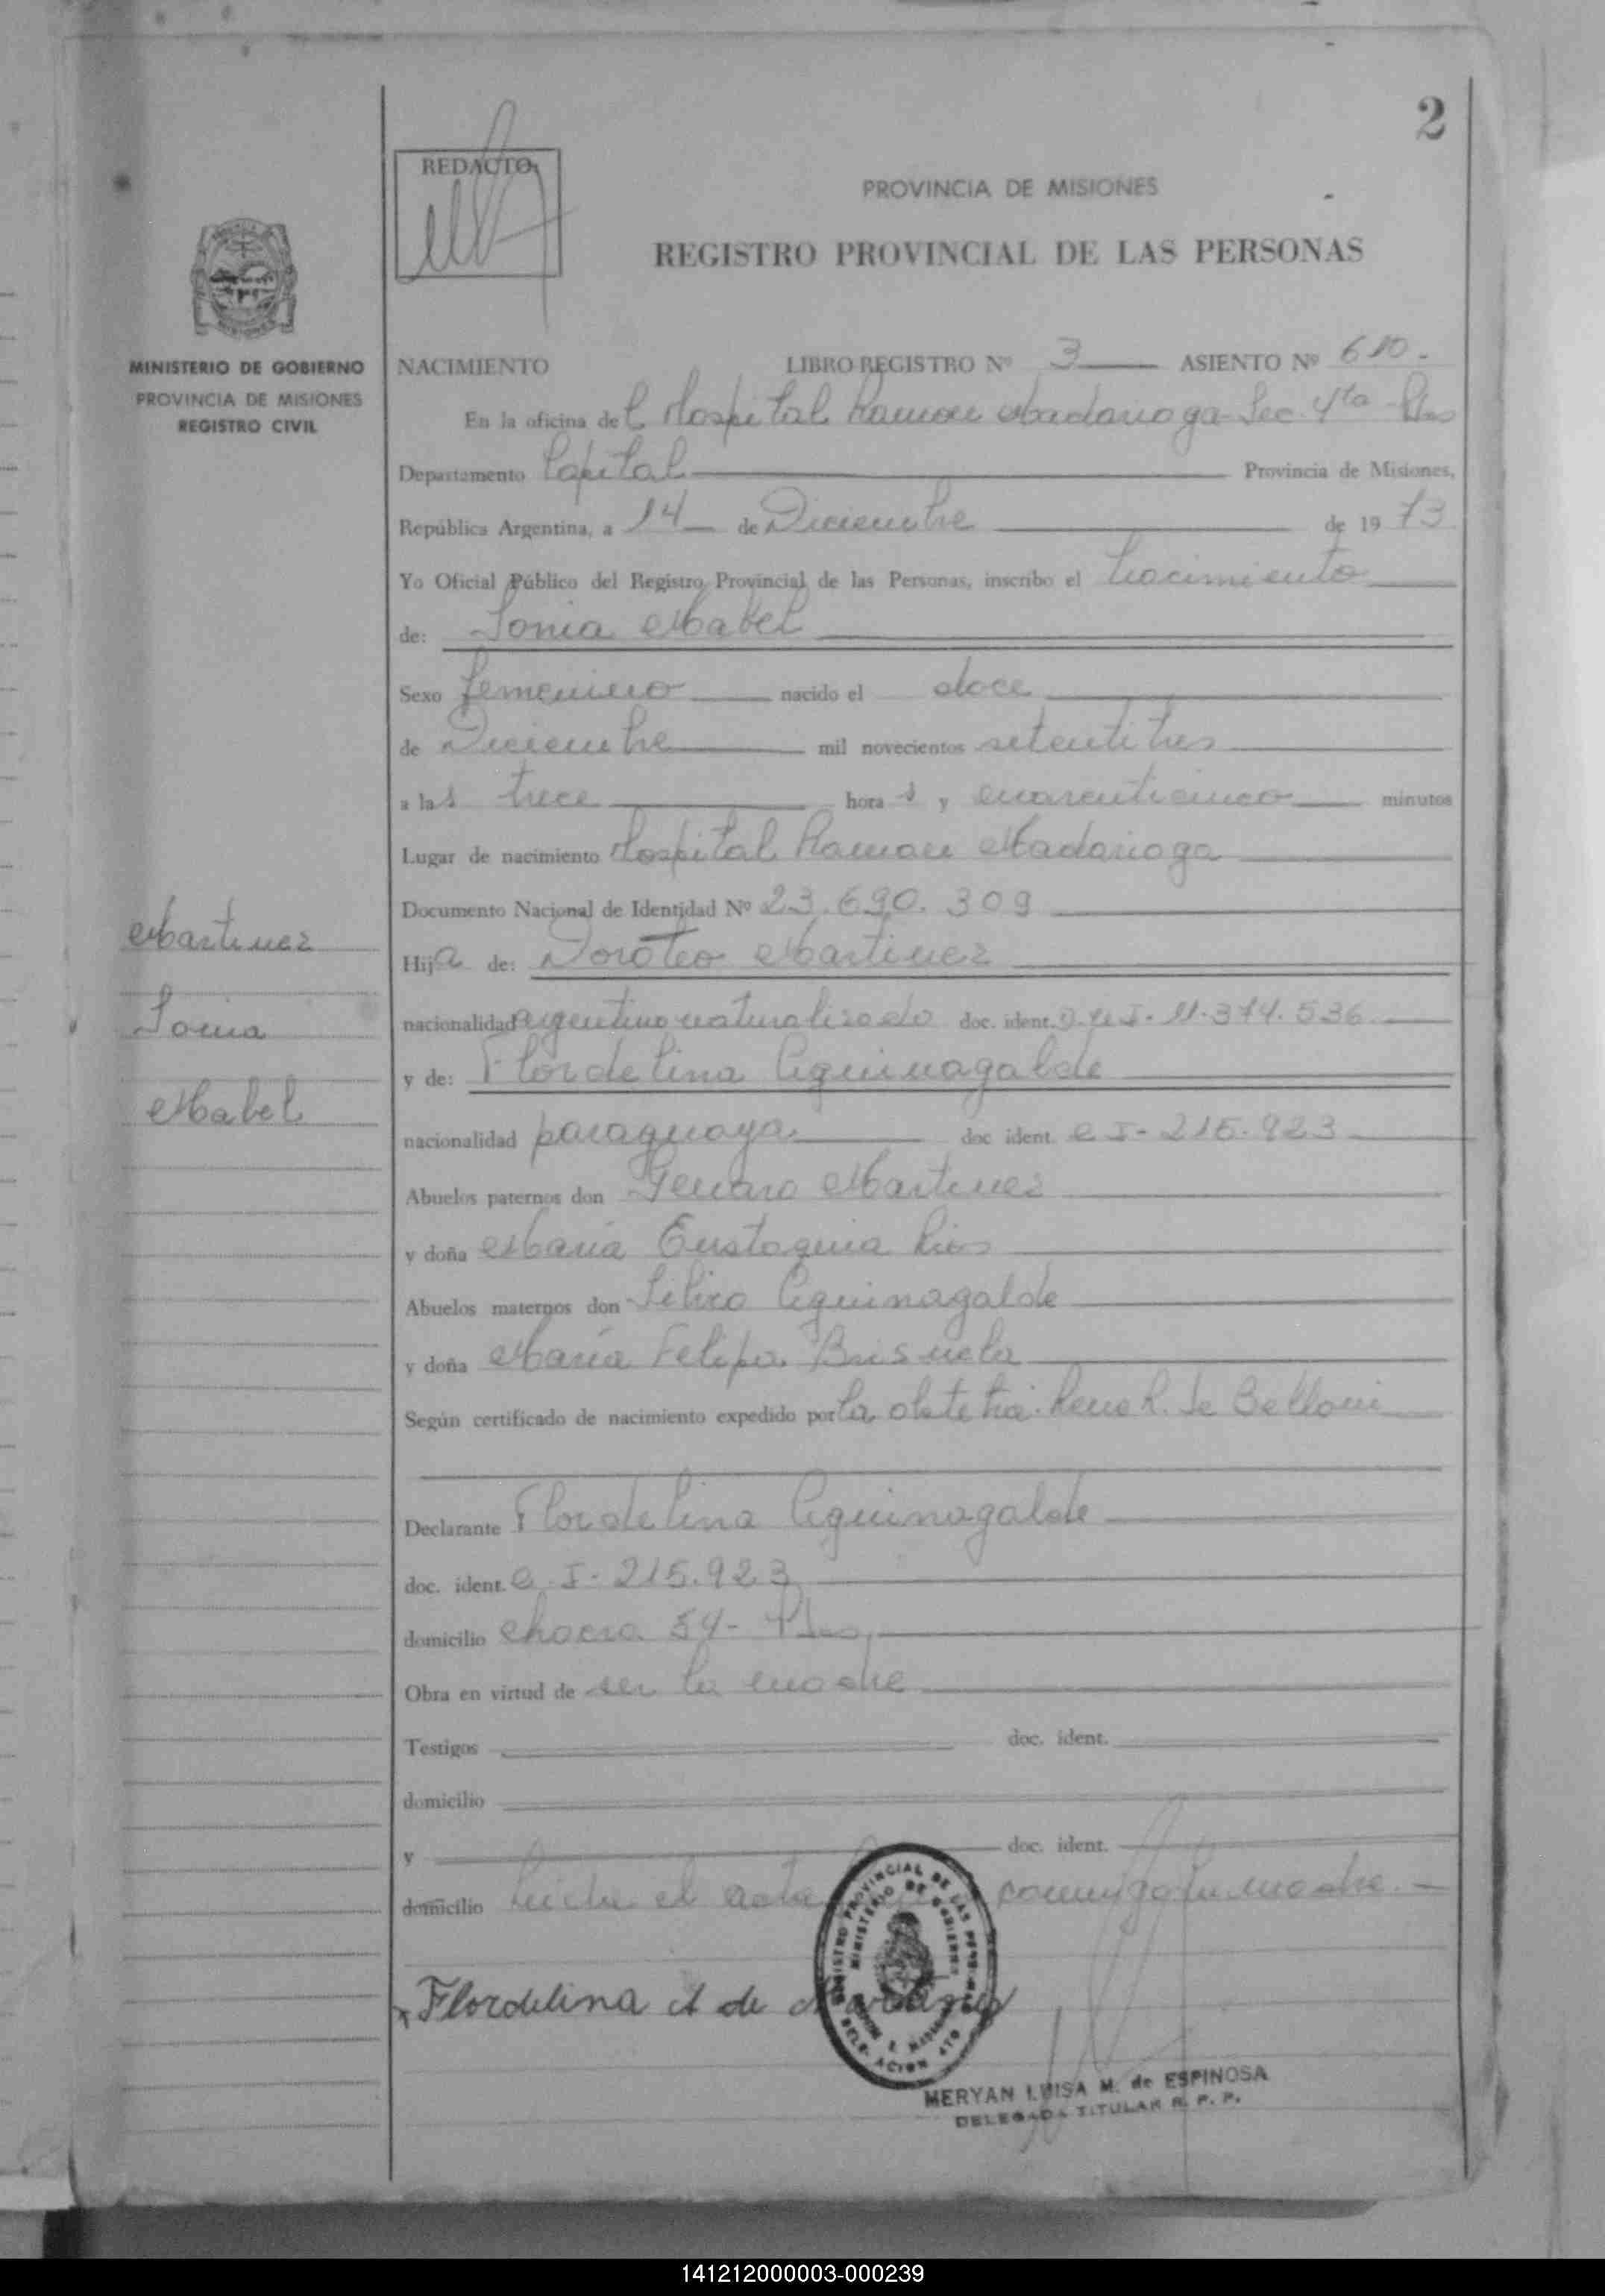 2
REDACTO:
PROVINCIA DE MISIONES
REGISTRO PROVINCIAL DE LAS PERSONAS
MINISTERIO DE GOBIERNO
PROVINCIA DE MISIONES
REGISTRO CIVIL
NACIMIENTO LIBRO REGISTRO Nº 3 ASIENTO Nº 610.
En la oficina del Hospital Ramon Madariaga Sec. 4ta Pdas
Departamento Capital Provincia de Misiones,
República Argentina, a 14 de Diciembre de 1973
Yo Oficial Público del Registro Provincial de las Personas, inscribo el nacimiento
de: Sonia Mabel
Sexo femenino nacido el doce
de Diciembre mil novecientos setentitres
a las trece horas y cuarenticinco minutos
Lugar de nacimiento Hospital Ramon Madariaga
Documento Nacional de Identidad Nº 23.690.309
Martinez
Sonia
Mabel
Hija de: Doroteo Martinez
nacionalidad argentino naturalizado doc. ident. D.N.I. 11.374.536
y de: Flordelina Aguinagalde
nacionalidad paraguaya doc. ident. C I- 215.923
Abuelos paternos don Genaro Martinez
y doña Maria Eustaquia Rios
Abuelos maternos don Aguinagalde
y doña María Felipa Brisuela
Según certificado de nacimiento expedido por la obstetra R. de Belloni
Declarante Flordelina Aguinagalde
doc. ident. C. I- 215.923
domicilio chacra 54- Pdas,
Obra en virtud de ser la madre
Testigos doc. ident.
domicilio
y doc. ident.
domicilio Leida el acta conmigo la madre.-
Flordelina A de Martinez
REGISTRO PROVINCIAL DE LAS PERSONAS
MINISTERIO DE GOBIERNO
DELEGACION 4TO
MERYAN LUISA M. de ESPINOSA
DELEGADA TITULAR R. P. P.
141212000003-000239